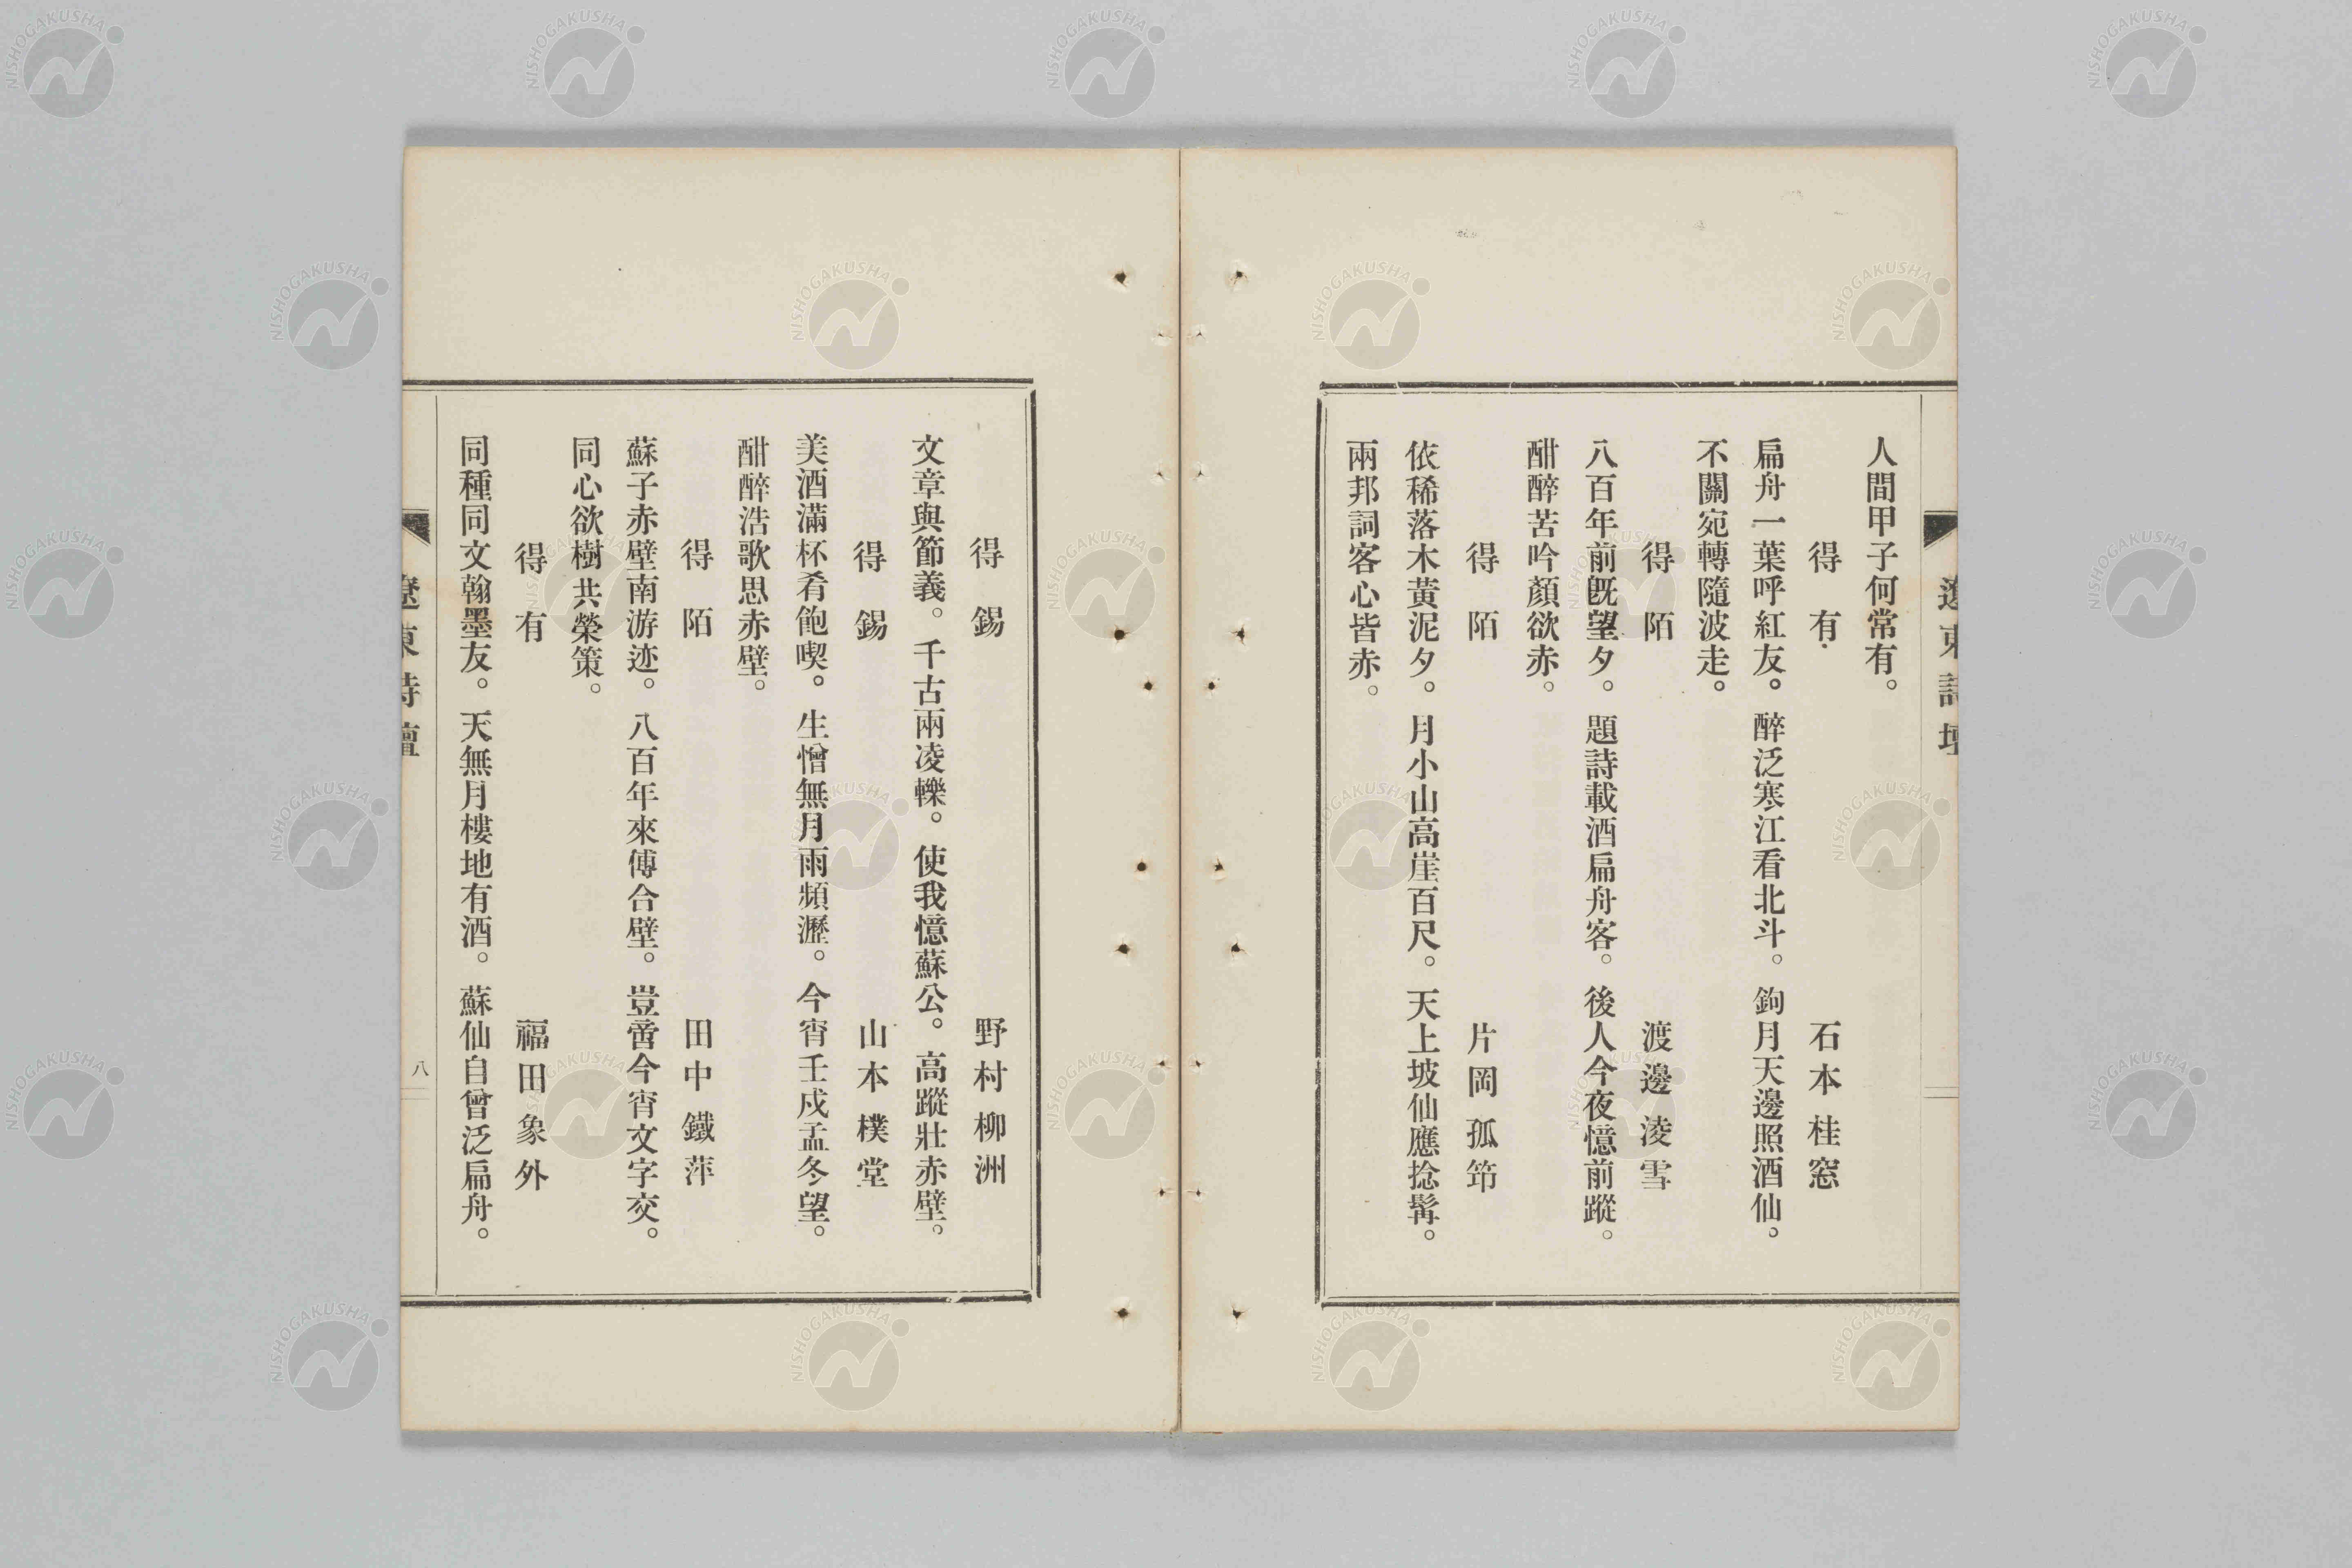 遼東詩壇
人間甲子何常有。
得有　石本桂窓
扁舟一葉呼紅友。醉泛寒江看北斗。鉤月天邊照酒仙。
不關宛轉隨波走。
得陌　渡邊淩雪
八百年前既望夕。題詩載酒扁舟客。後人今夜憶前蹤。
酣醉苦吟顏欲赤。
得陌　片岡孤笻
依稀落木黃泥夕。月小山高崖百尺。天上坡仙應捻髯。
兩邦詞客心皆赤。
得錫　野村柳洲
文章與節義。千古兩凌轢。使我憶蘇公。高蹤壯赤壁。
得錫　山本樸堂
美酒滿杯肴飽喫。生憎無月雨頻瀝。今宵壬戍孟冬望。
酣醉浩歌思赤壁。
得陌　田中鐵萍
蘇子赤壁南游迹。八百年來傳合壁。豈啻今宵文字交。
同心欲樹共榮策。
得有　福田象外
同種同文翰墨友。天無月樓地有酒。蘇仙自曾泛扁舟。
遼東詩壇
八
NISHOGAKUSHA